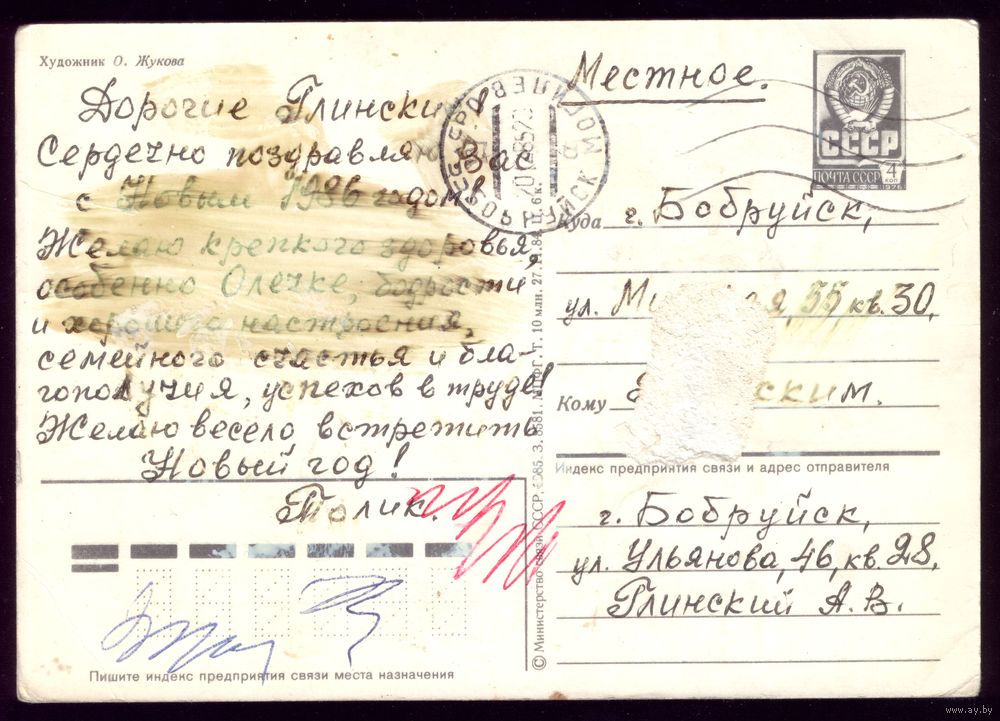 Художник О. Жукова
Дорогие Глинские!
Сердечно поздравляю Вас
с Новым 1986 годом!
Желаю крепкого здоровья,
особенно Олечке, бодрости
и хорошего настроения,
семейного счастья и бла-
гополучия, успехов в труде!
Желаю весело встретить
Новый год!
Толик.
Пишите индекс предприятия связи места назначения
© Министерство связи СССР, 1985. З. 8581. МПФГ. Т. 10 млн. 27.
Ц. 6 к.
БОБРУЙСК
Местное.
СССР
ПОЧТА СССР 4 КОП
1976
Куда г. Бобруйск,
ул. 55, кв. 30,
Кому
Индекс предприятия связи и адрес отправителя
г. Бобруйск,
ул. Ульянова, 46, кв. 28,
Глинский А. В.
www.ay.by